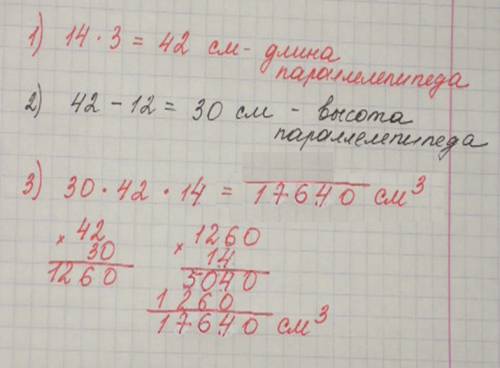 1) 14 · 3 = 42 см - длина
параллелепипеда
2) 42 - 12 = 30 см - высота
параллелепипеда
3) 30 · 42 · 14 = 17640 см³
× 42
30
1260
× 1260
14
5040
1260
17640 см³